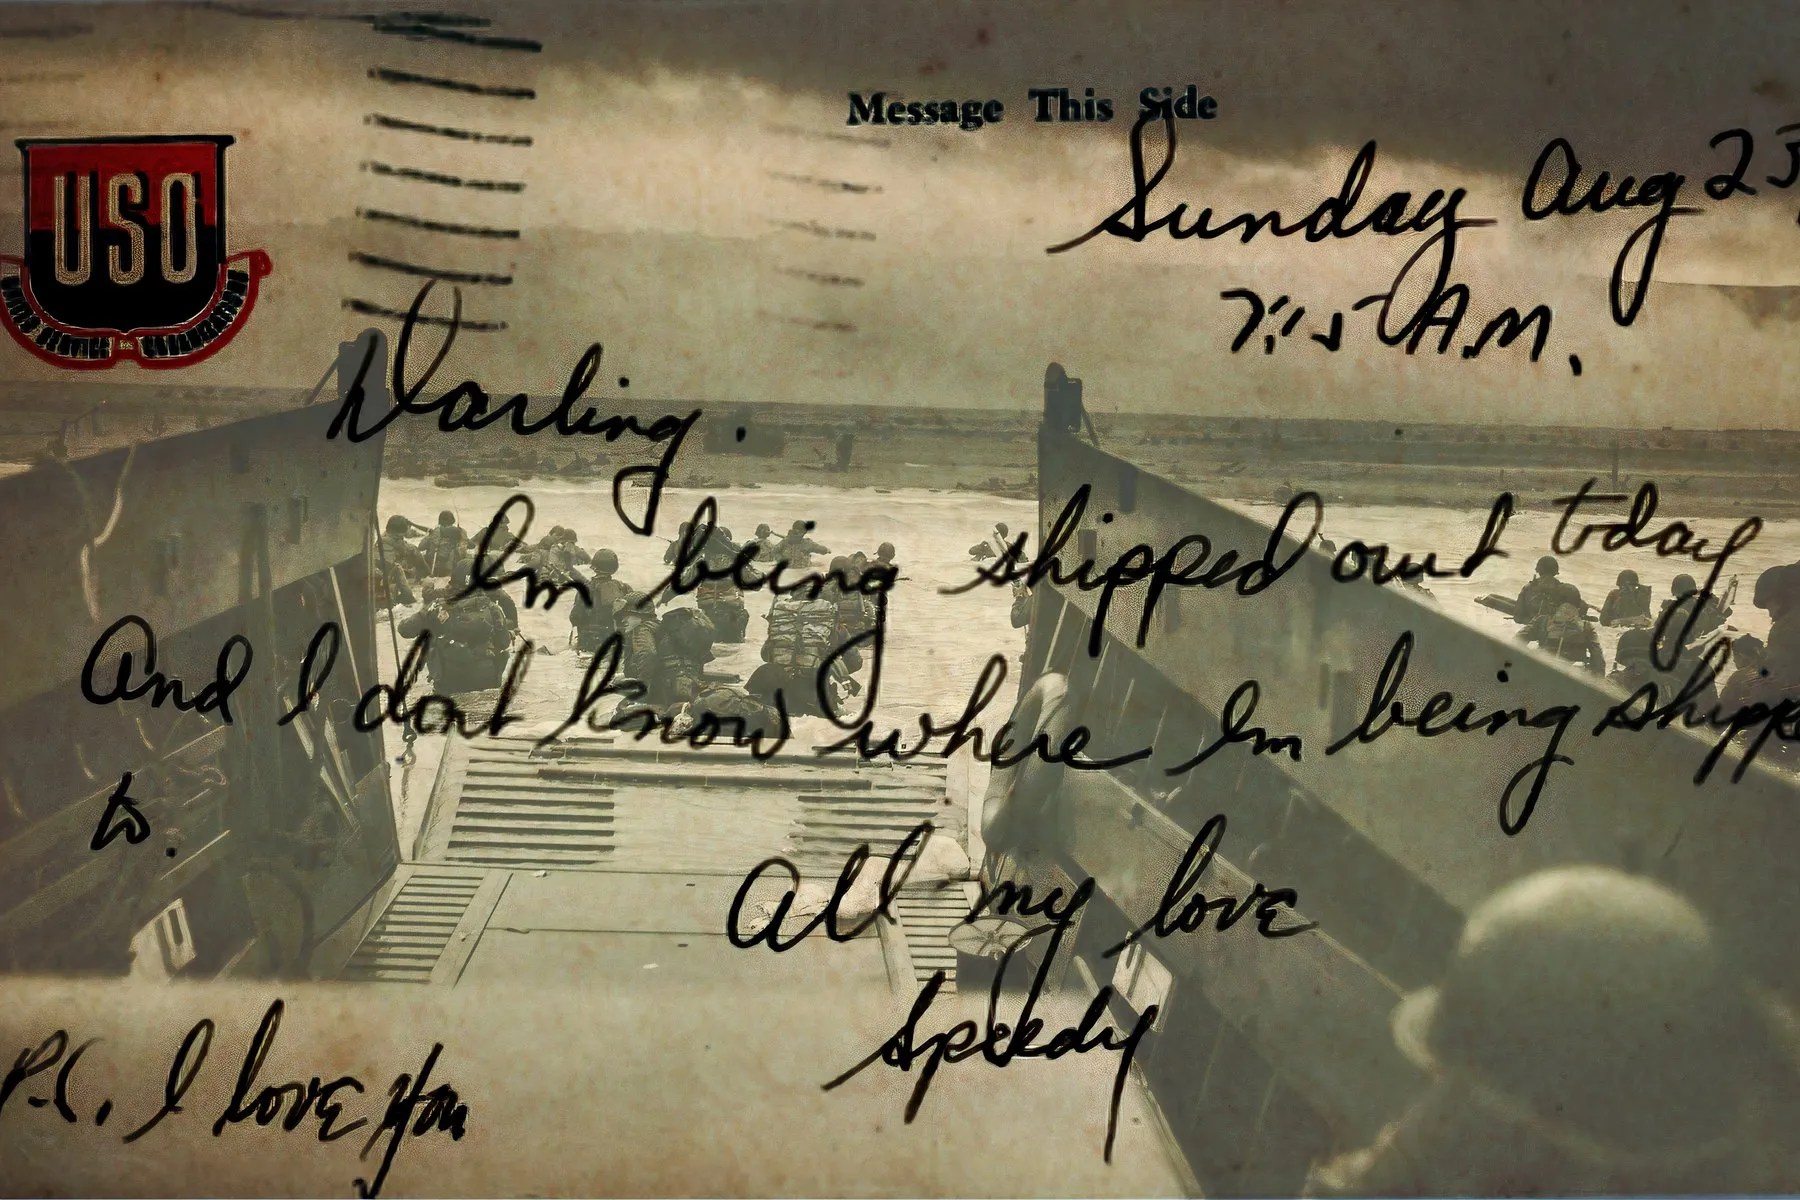 Message This Side
USO
Sunday Aug 23,
7:15 A.M.
Darling.
Im being shipped out today
And I dont know where Im being shippe
to.
All my love
Speedy
P.S. I love you